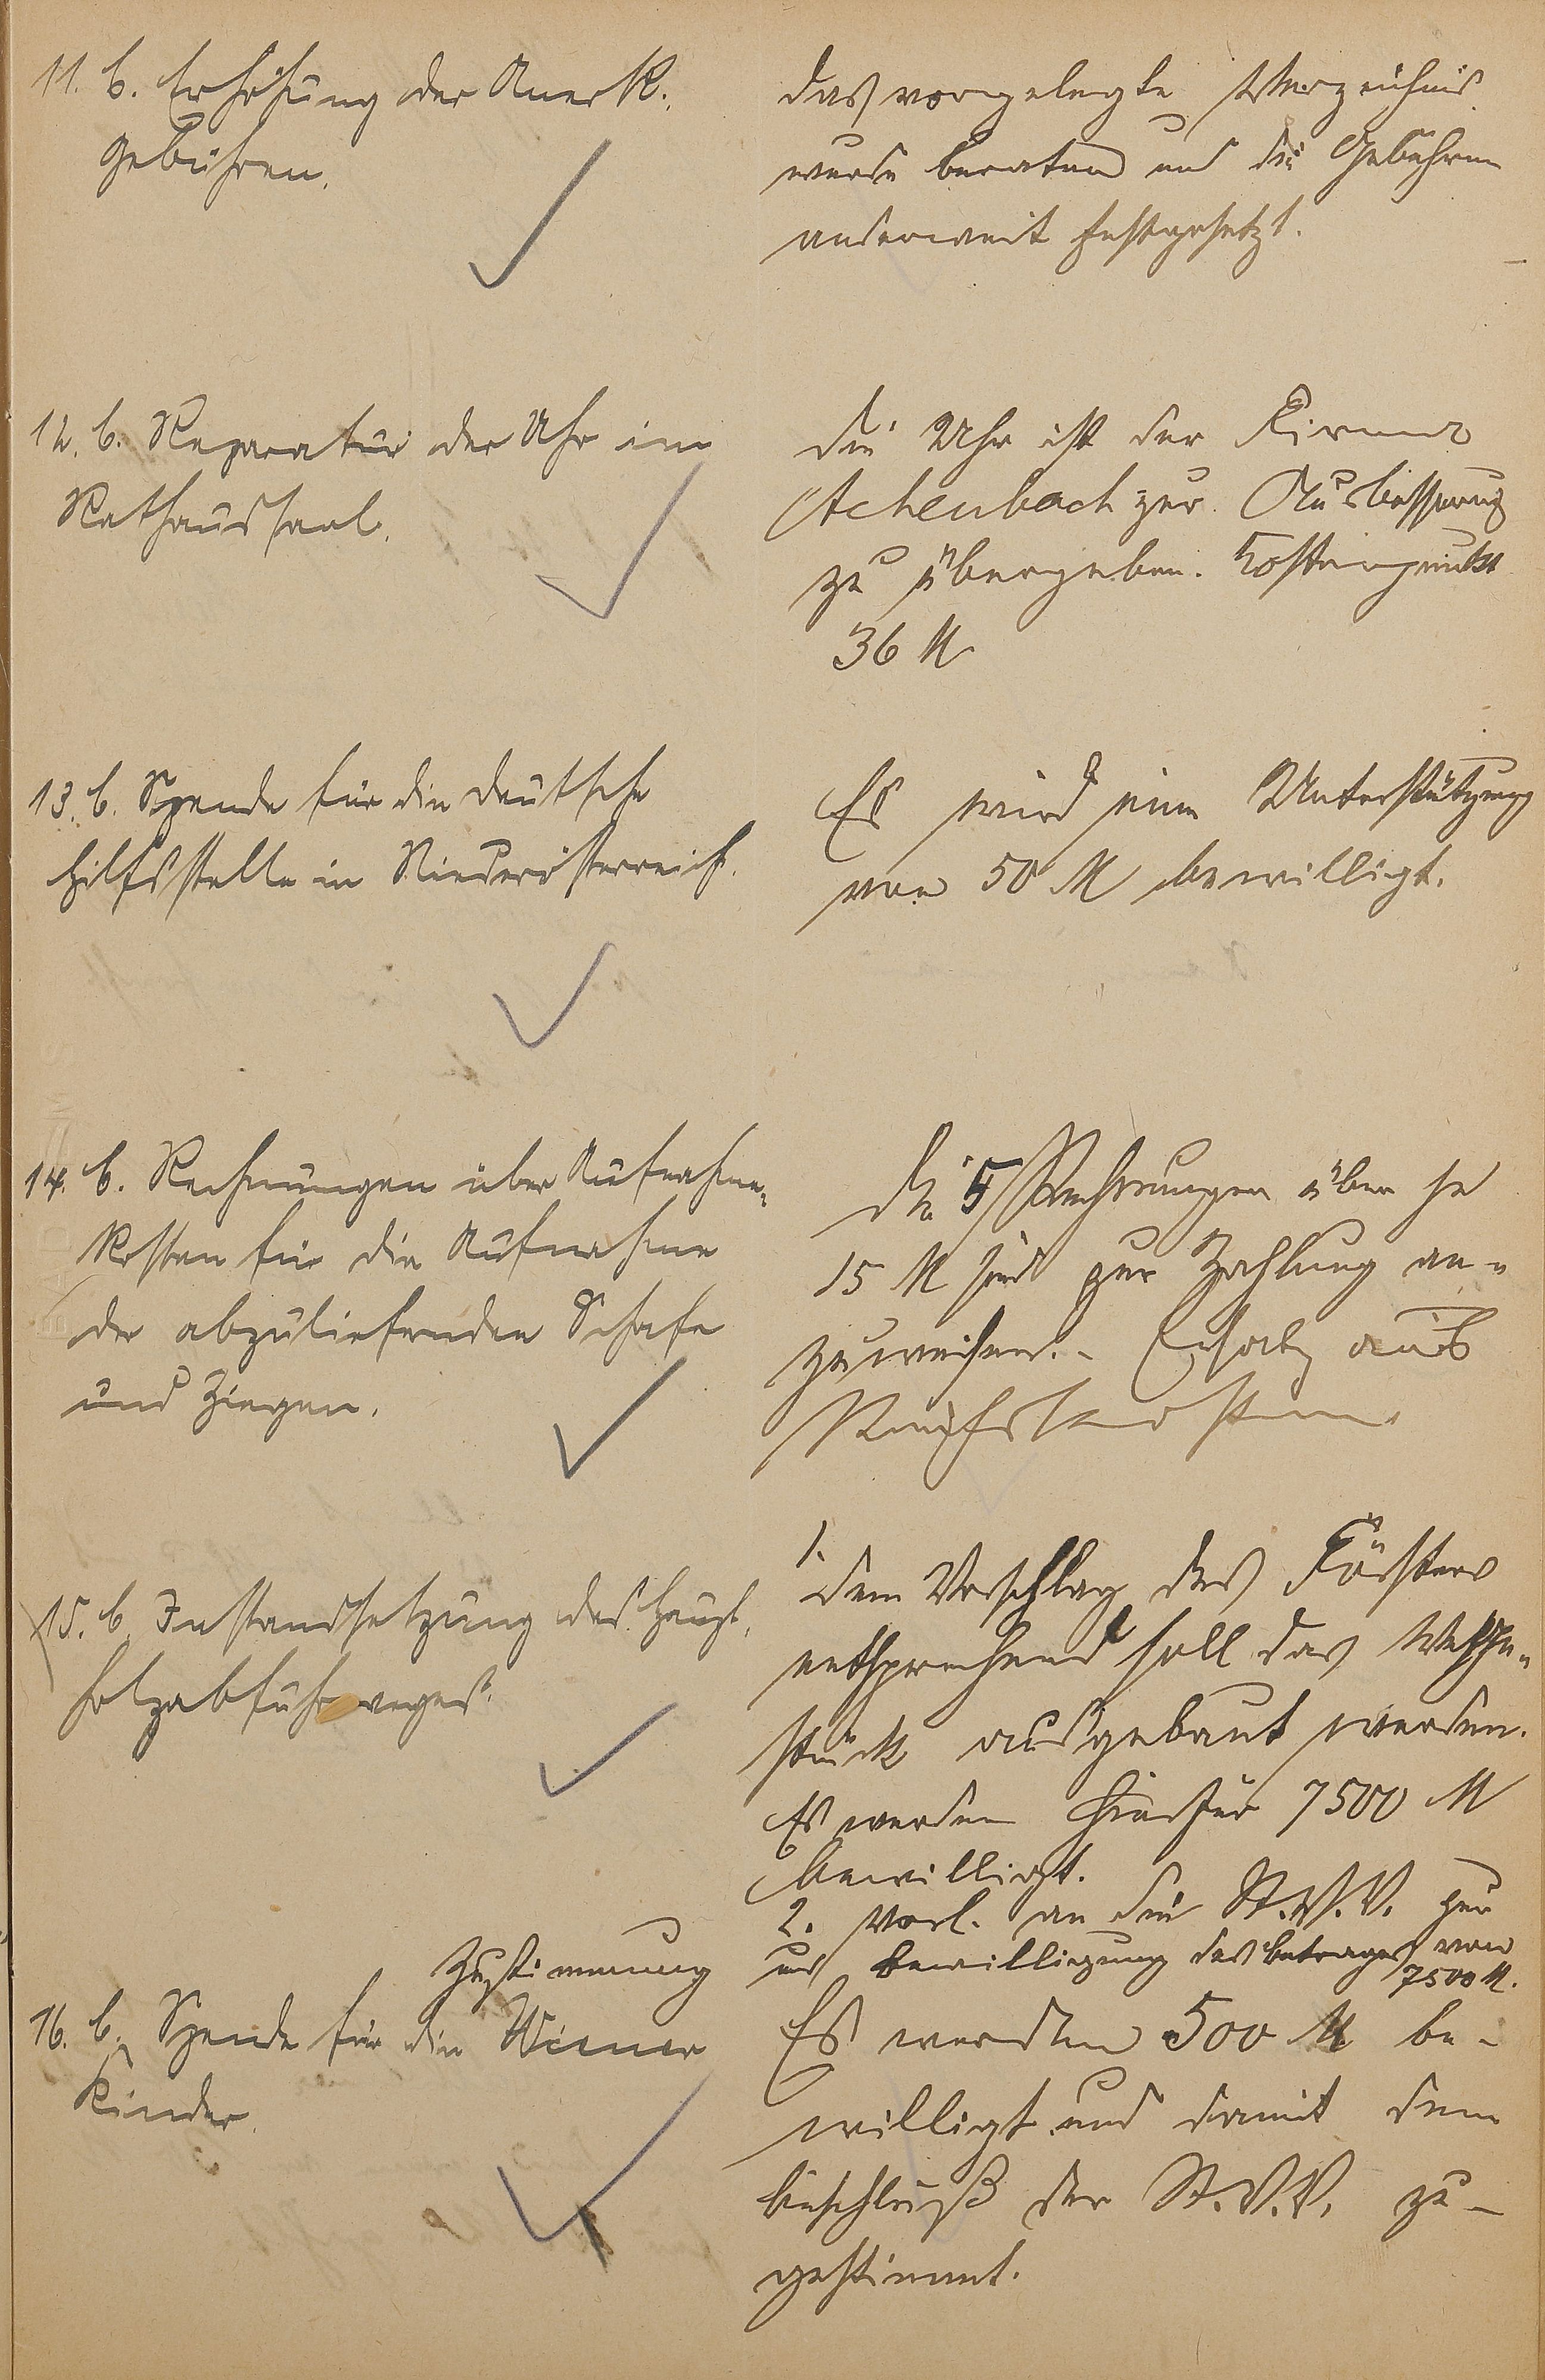 11. b. Erhöhung der Anerk.
gebühren.
das vorgelegte Verzeichnis
wurde beraten und die Gebühren
anderweit festgesetzt.
12. b. Reparatur der Uhr im
Rathaussaal.
Die Uhr ist der Firma
Achenbach zur Ausbesserung
zu übergeben. Kostenpunkt
36 M
13. b. Spende für die deutsche
Hilfsstelle in Niederösterreich.
Es wird eine Unterstützung
von 50 M bewilligt.
14. b. Rechnungen über Aufnahme-
kosten für die Aufnahme
der abzuliefernden Schafe
und Ziegen.
Die 5 Rechnungen über je
15 M sind zur Zahlung an-
zuweisen. - Ersatz aus
15. b. Instandsetzung des Haupt-
holzabfuhrweges.
1.
Dem Vorschlag des Försters
entsprechend soll das
stück ausgebaut werden.
Es werden hierfür 7500 M
bewilligt.
2. Vorl. an die St.V.V. zur
Zustimmung und Bewilligung des Betrages von
7500 M.
16. b. Spende für die Wiener
Kinder.
Es werden 500 M be-
willigt und damit dem
Beschluß der St.V.V. zu-
gestimmt.